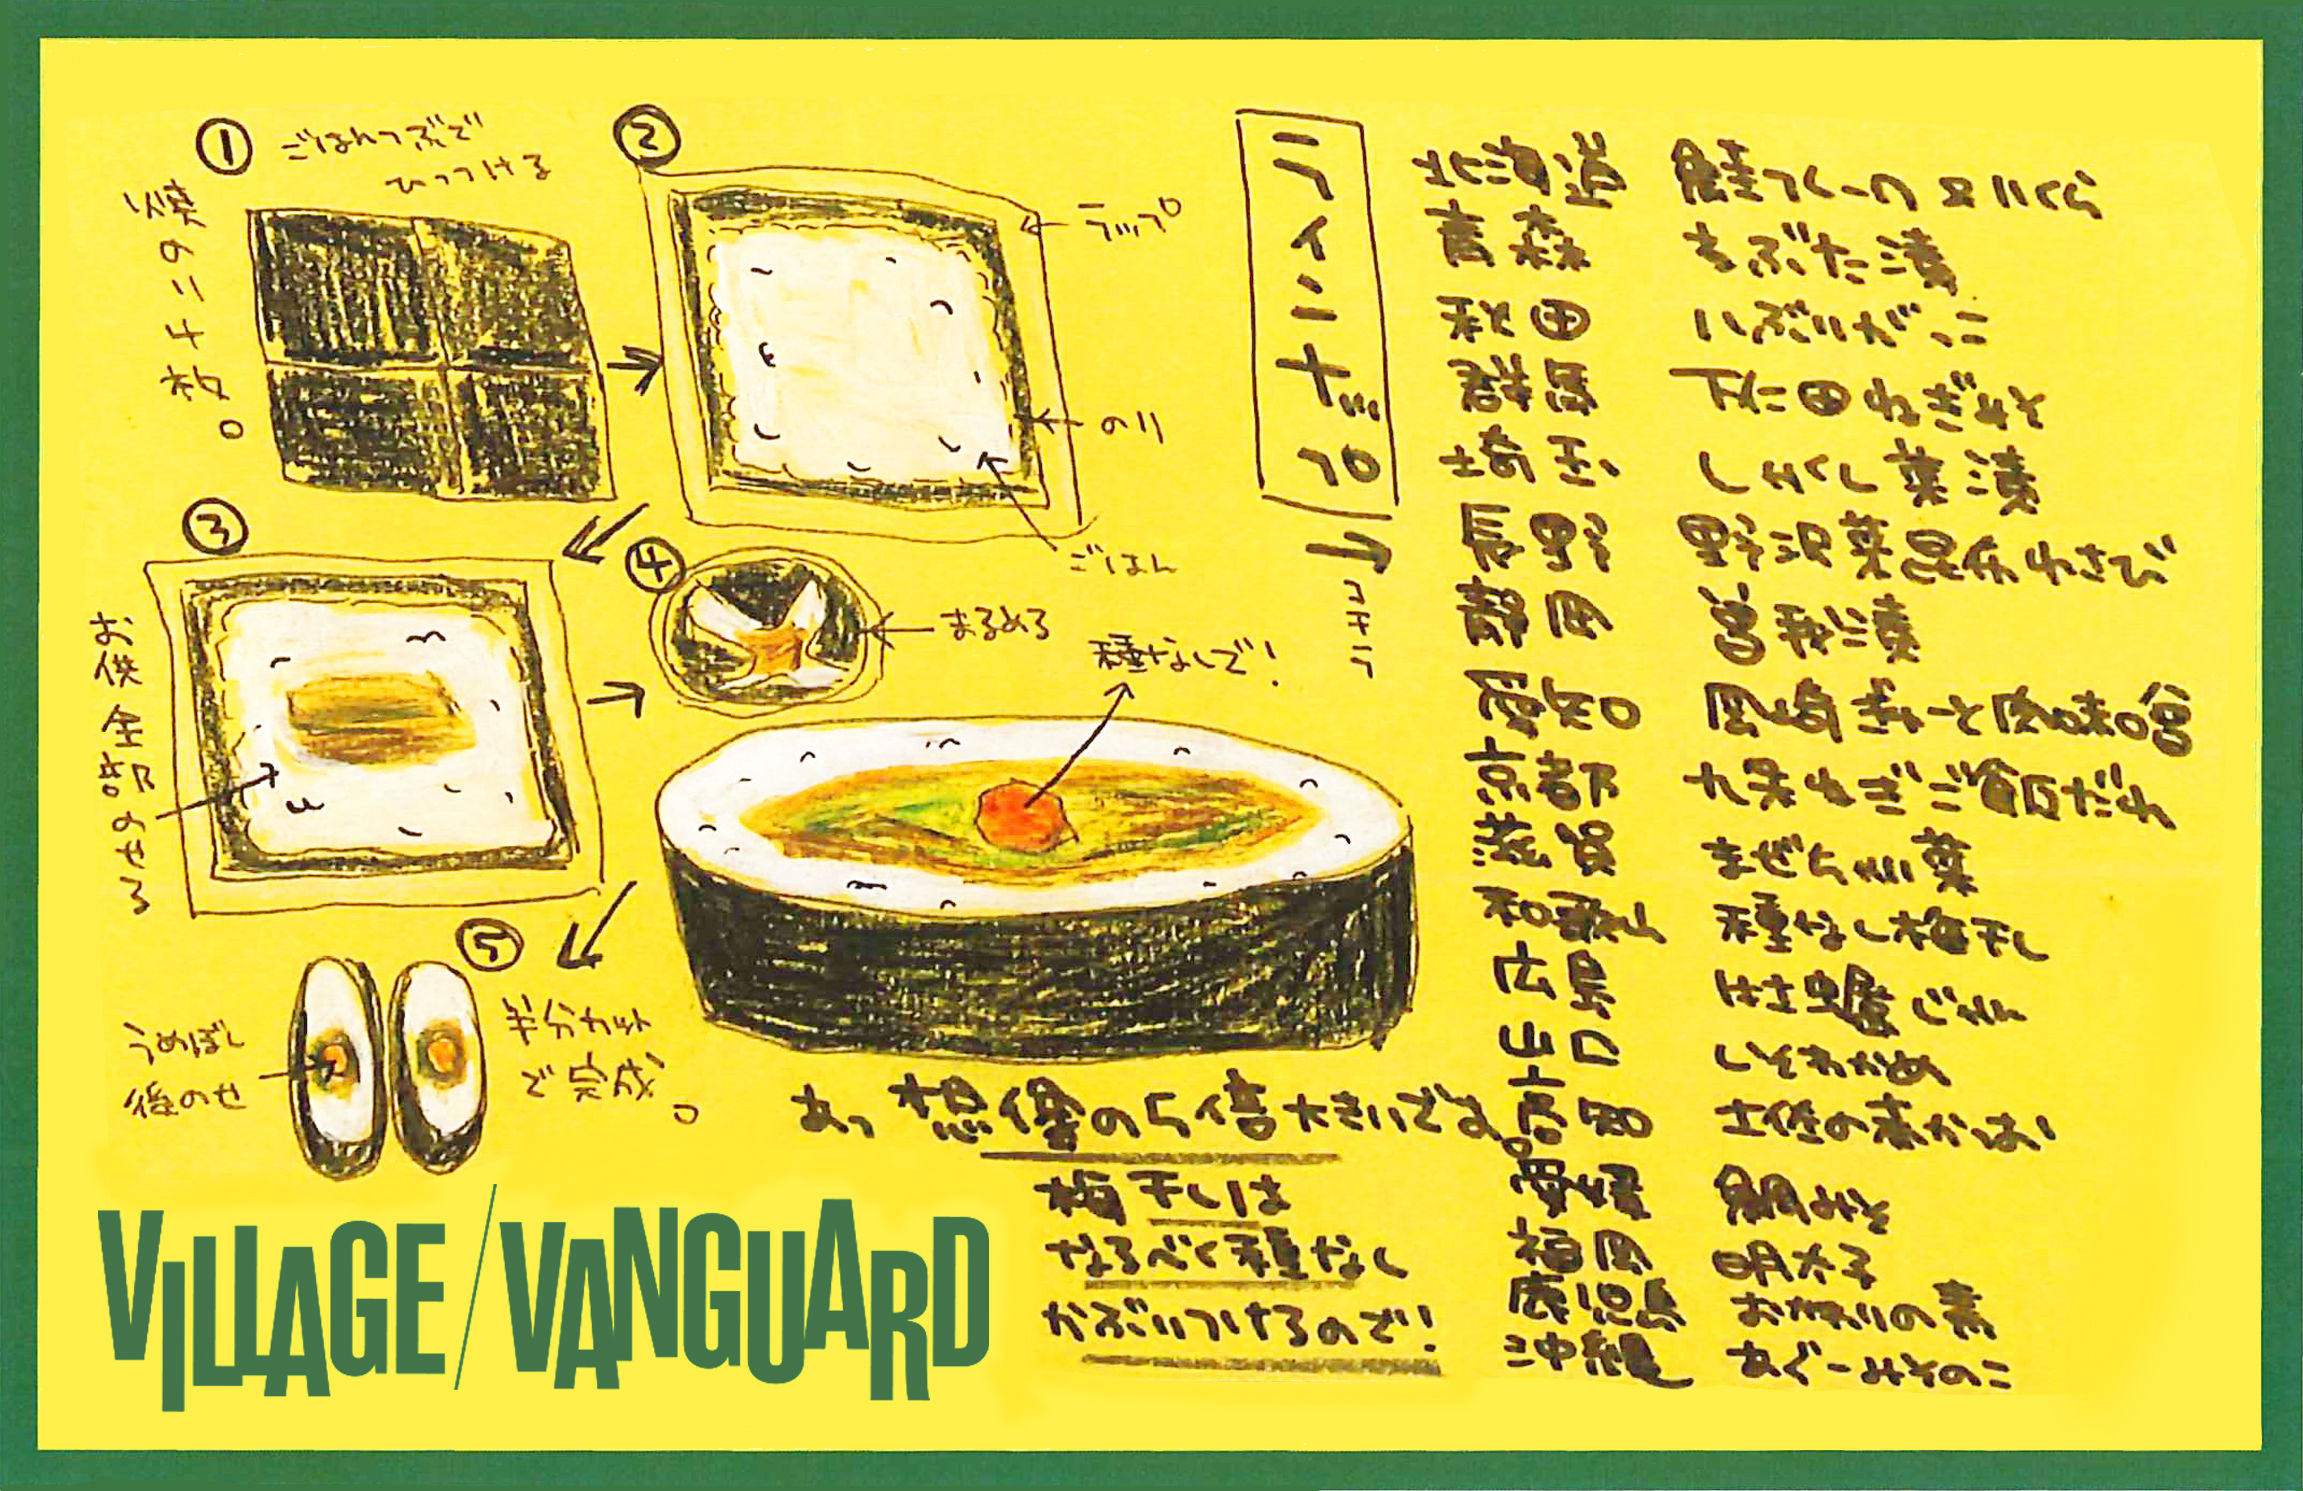 ①
ごはんつぶで
ひっつける
焼のり4枚。
②
ラップ
のり
ごはん
③
お供全部のせる
④
まるめる
種なしで!
⑤
うめぼし
後のせ
半分カット
で完成。
あっ想像の5倍大きいでよ。
梅干しは
なるべく種なし
かぶりつけるので!
VILLAGE/VANGUARD
ラインナップ
→
コチラ
北海道 鮭フレーク 又 いくら
青森 ねぶた漬
秋田 いぶりがっこ
群馬 下仁田ねぎみそ
埼玉 しゃくし菜漬
長野 野沢菜昆布わさび
静岡 曽我漬
愛知 岡崎ぎゅーと肉味噌
京都 九条ねぎご飯だれ
滋賀 まぜちゃい菜
和歌山 種なし梅干し
広島 はさ
山口 しそわかめ
高知 土佐の素かつお
愛媛 鯛みそ
福岡 明太子
鹿児島 おかわりの素
沖縄 あぐーみそのこ